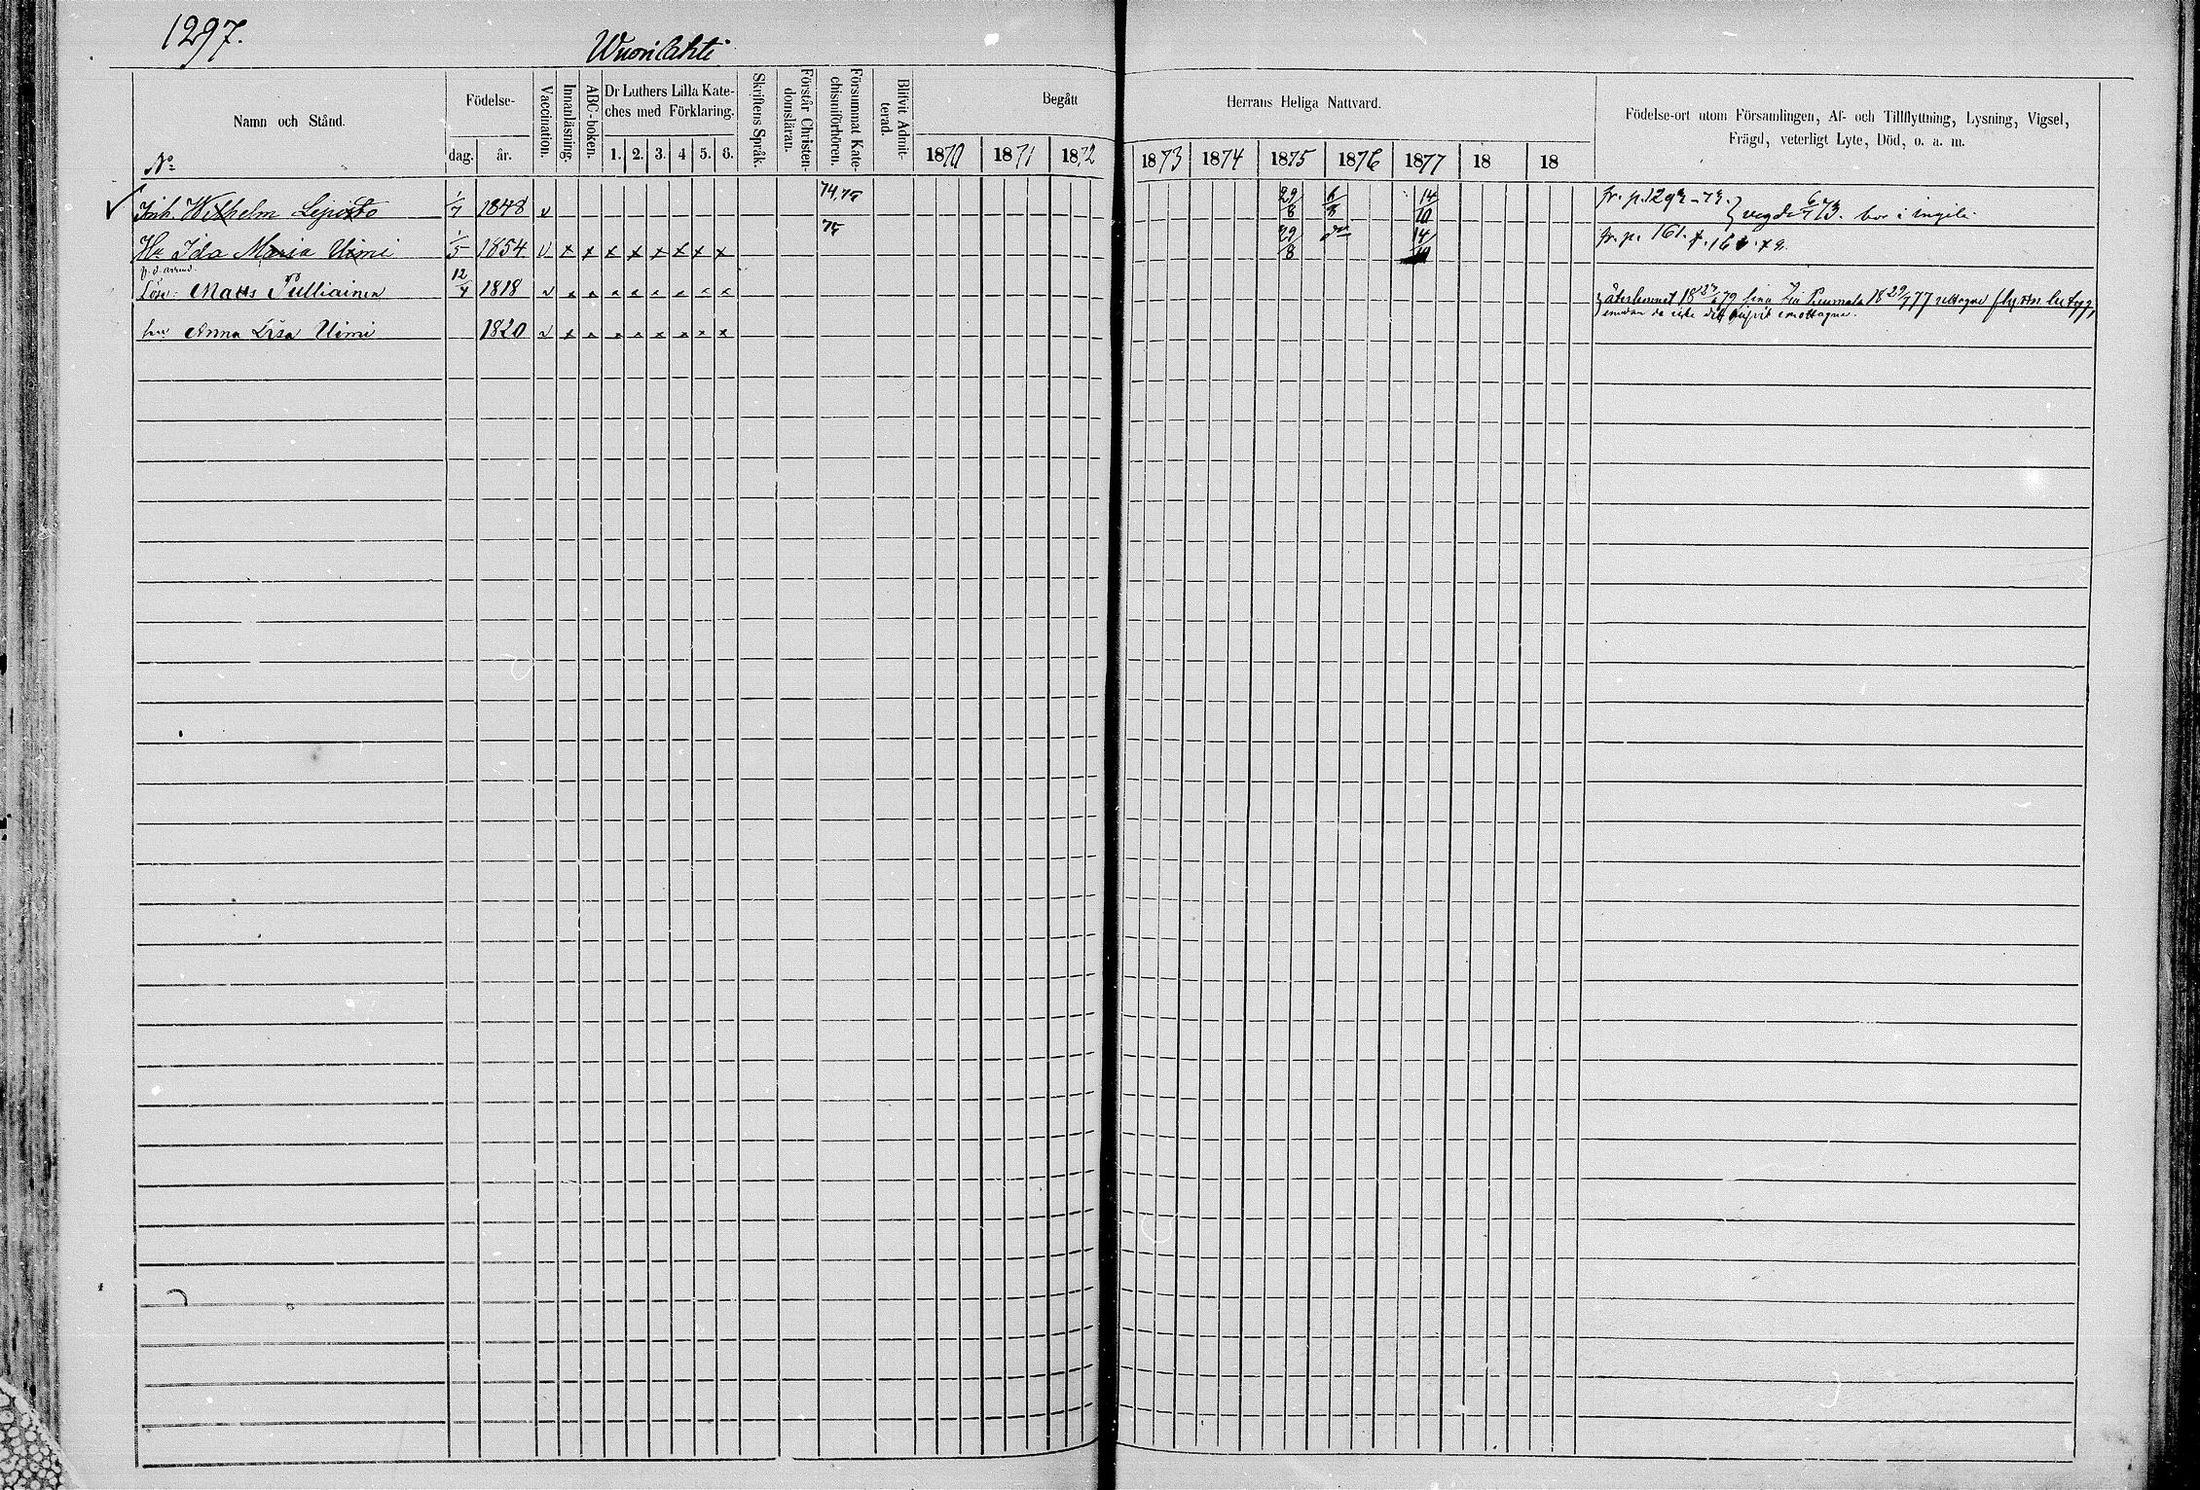 1297.
Wuorilahti
Namn och Stånd.
No
Födelse-
dag. år.
Vaccination.
Innanläsning.
ABC-boken.
Dr Luthers Lilla Kate-
ches med Förklaring.
1. 2. 3. 4 5. 6.
Skriftens Språk.
Förstår Christen-
domsläran.
Försummat Kate-
chismiförhören.
Blifvit Admit-
terad.
Begått
1870 1871 1872
Herrans Heliga Nattvard.
1873 1874 1875 1876 1877 18 18
Födelse-ort utom Församlingen, Af- och Tillflyttning, Lysning, Vigsel,
Frägd, veterligt Lyte, Död, o. a. m.
Inh. Wilhelm Leposto 1/7 1848 v 74,75 29/8 6/8 14/10 fr. p. 1292-73. vigde 6/7 73. bor i
Hu Ida Maria Uimi 1/5 1854 v x x x x x x x x 75 29/8 14/10 fr. p. 161.
Lösr Matts Pulliainen 12/4 1818 v x x x x x x x x återkomnet 18 79 Puumala 18 29/1 77
hu Anna Lisa Uimi 1820 v x x x x x x x x emottagne.